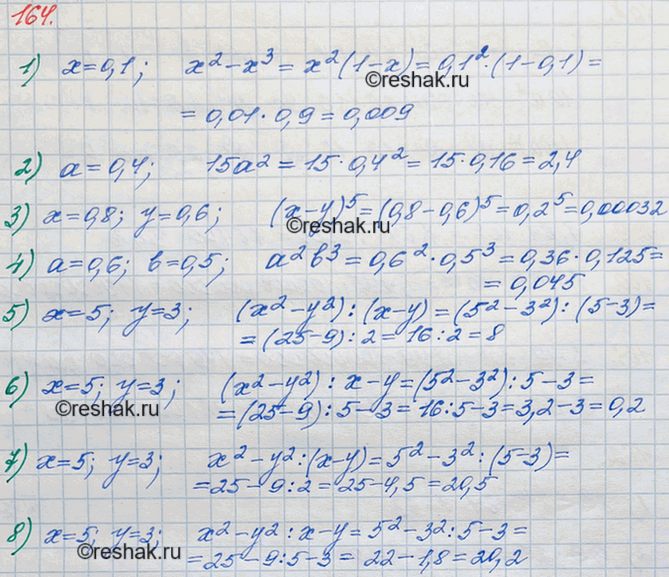 164.
1) x=0,1; x²-x³ = x²(1-x)=0,1²·(1-0,1)=
©reshak.ru
= 0,01·0,9=0,009
2) a=0,4; 15a²=15·0,4²=15·0,16=2,4
3) x=0,8; y=0,6; (x-y)⁵=(0,8-0,6)⁵=0,2⁵=0,00032
©reshak.ru
4) a=0,6; b=0,5; a²b³=0,6²·0,5³=0,36·0,125=
= 0,045
5) x=5; y=3; (x²-y²):(x-y)=(5²-3²):(5-3)=
=(25-9):2=16:2=8
6) x=5; y=3; (x²-y²):x-y=(5²-3²):5-3=
©reshak.ru
=(25-9):5-3=16:5-3=3,2-3=0,2
7) x=5; y=3; x²-y²:(x-y)=5²-3²:(5-3)=
=25-9:2=25-4,5=20,5
8) x=5; y=3; x²-y²:x-y=5²-3²:5-3=
©reshak.ru
=25-9:5-3= 22-1,8=20,2